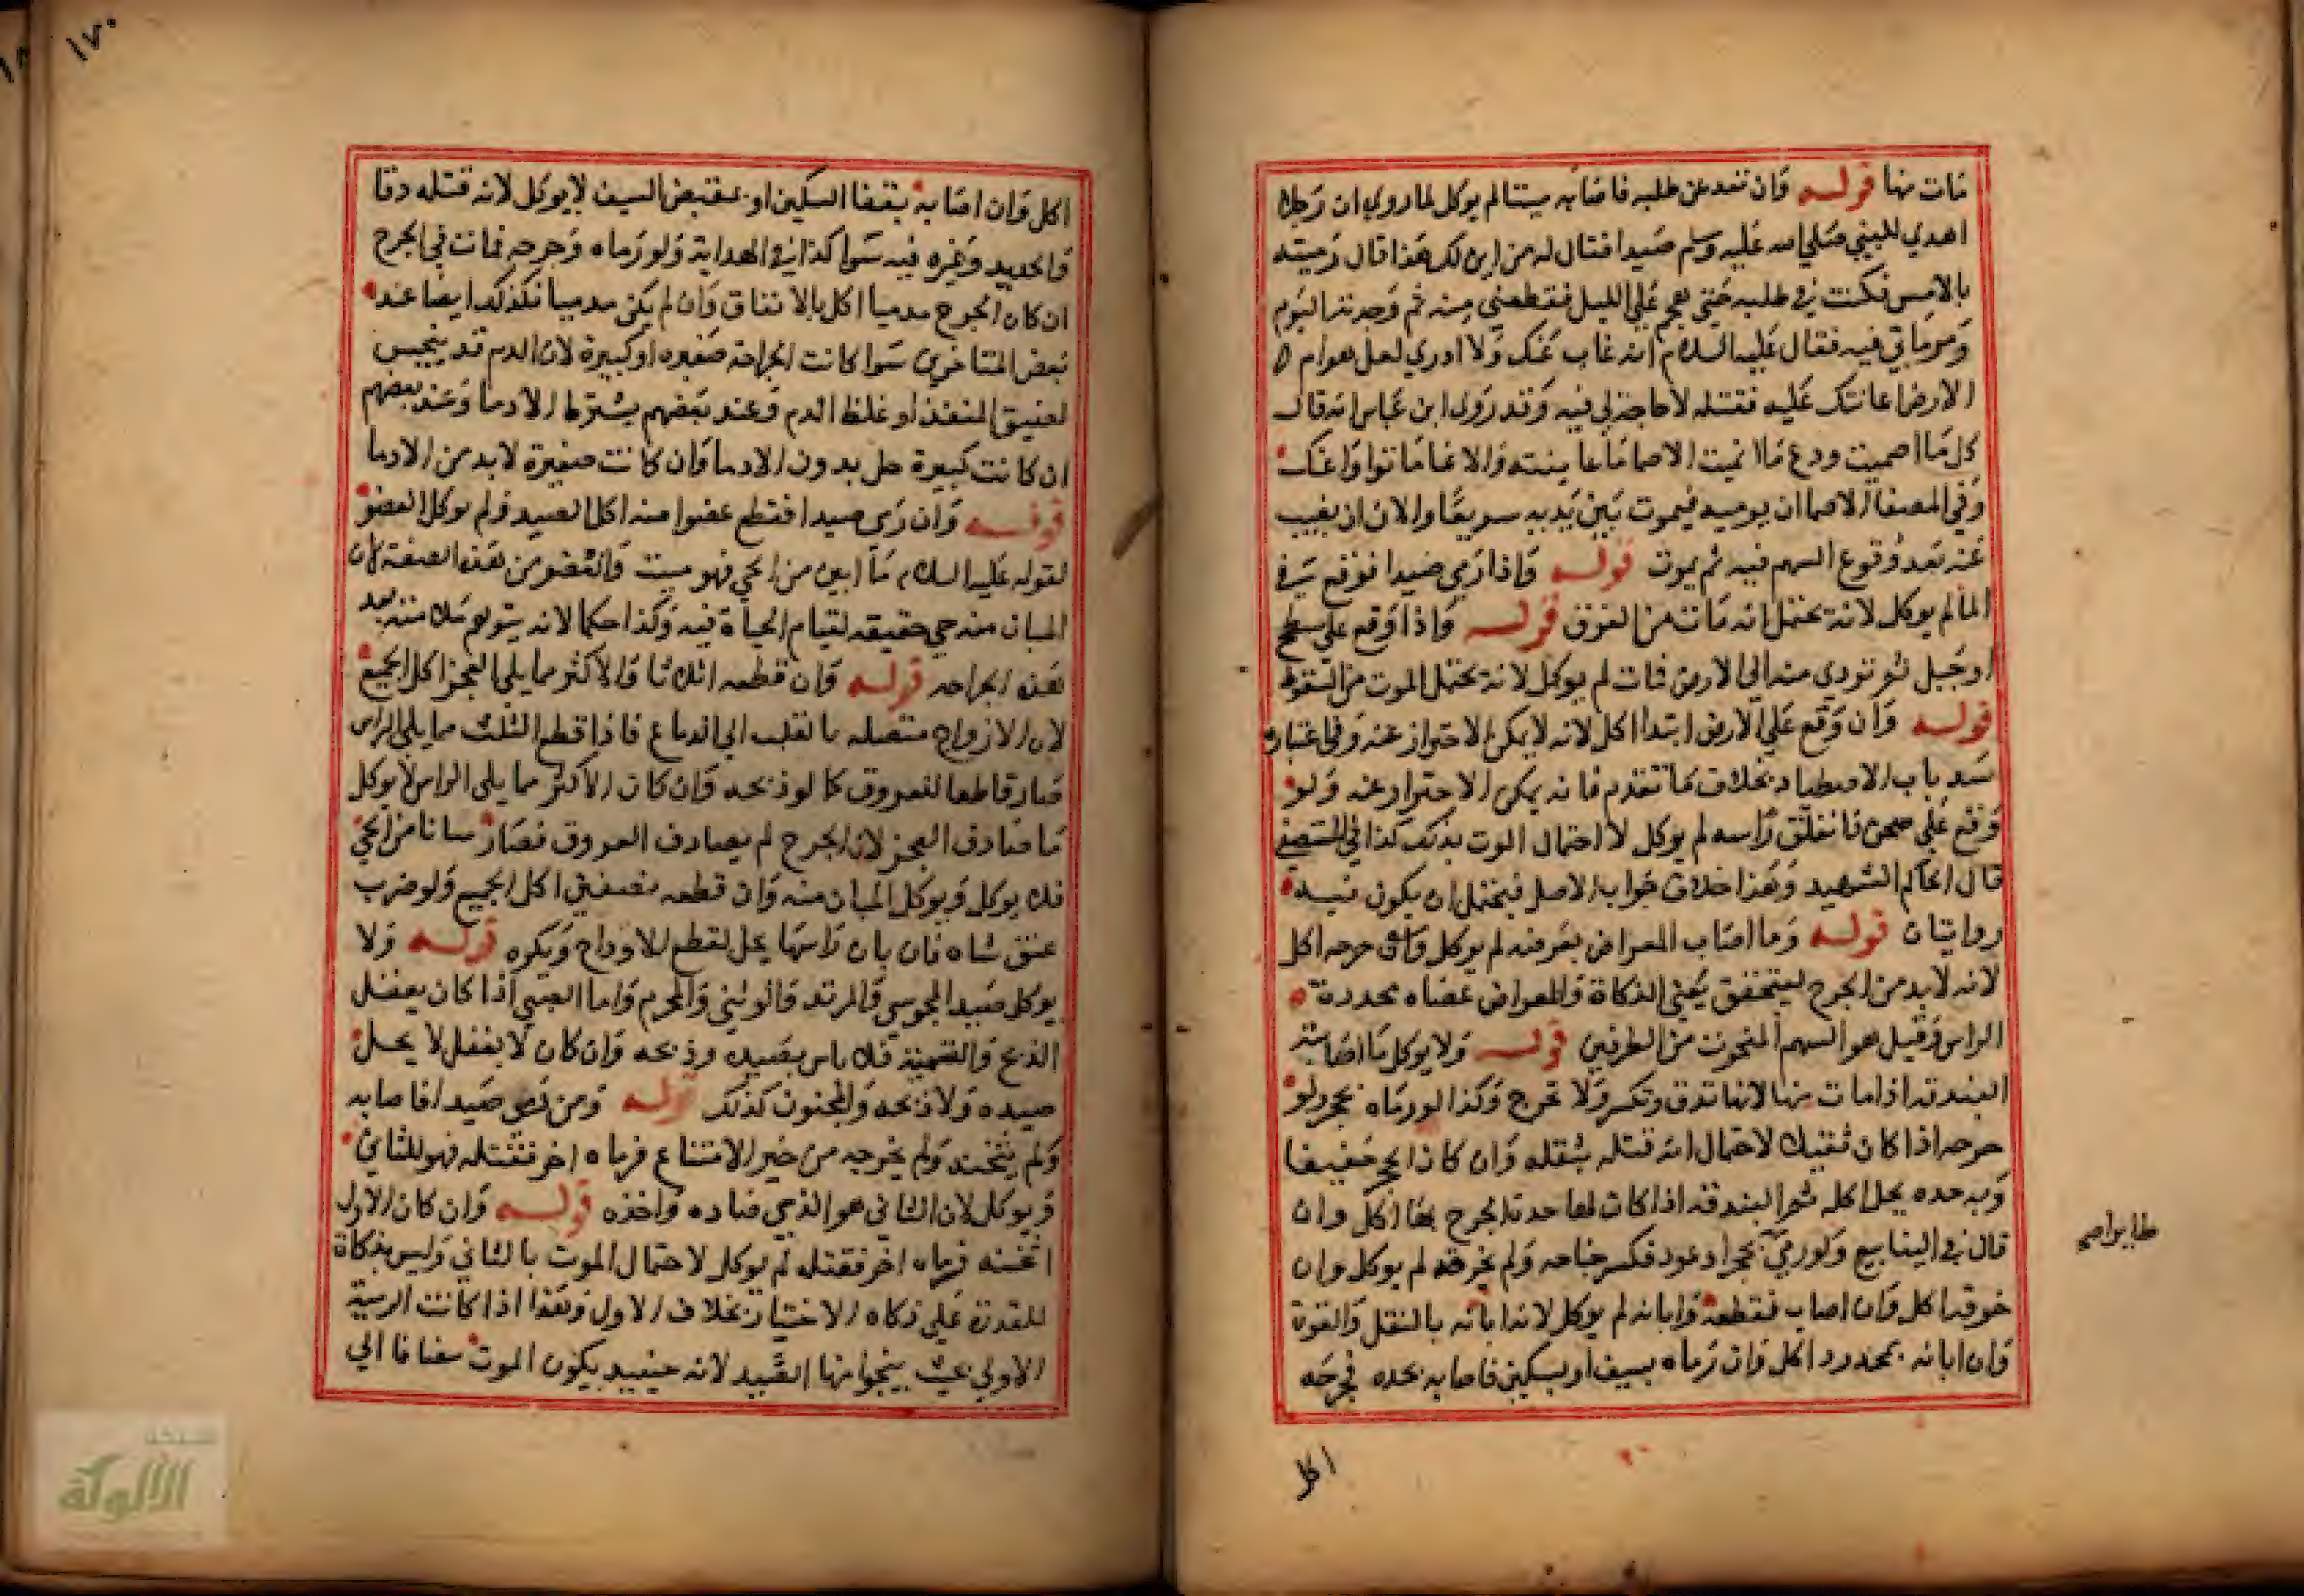 مات منها قوله وان قعد عن طلبه فاصابه ميتا لم يوكل لما روي ان رجلا
اهدي للنبي صلي الله عليه وسلم صيدا فقال له من اين لك هذا قال رميته
بالامس فكنت في طلبه حتي هجم علي الليل فقطعني منه ثم وجدته اليوم
ومرماتي فيه فقال عليه السلام انه غاب عنك ولا ادري لعل هوام
الارض اعانتك عليه فقتله لا حاجة لي فيه وقد روي ابن عباس انه قال
كل ما اصميت ودع ما انميت الاصما ما عاينته والانما ما توا
وفي المصفا الاصما ان يرميه فيموت بين يديه سريعا والانا ان يغيب
عنه بعد وقوع السهم فيه ثم يموت قوله واذا رمي صيدا فوقع في
الما لم يوكل لانه يحتمل انه مات من الغرق قوله واذا وقع علي سطح
او جبل ثم تردي منه الي الارض فمات لم يوكل لانه يحتمل الموت من السقوط
قوله وان وقع علي الارض ابتدا اكل لانه لا يمكن الاحتراز عنه وفي اعتباره
سد باب الاصطياد بخلاف ما تقدم فانه يمكن الاحتراز عنه ولو
وقع علي صخر فانفلق راسه لم يوكل لاحتمال الموت بذلك كذا في المستصفي
قال الحاكم الشهيد وهذا خلاف جواب الاصل فيحتمل ان يكون فيه
روايتان قوله وما اصاب المعراض بعرضه لم يوكل وان جرحه اكل
لانه لا بد من الجرح ليتحقق معني الذكاة والمعراض عصاه محددة
الراس وقيل هو السهم المنحوت من الطرفين قوله ولا يوكل ما اصابته
البندقه اذا مات منها لانها تدق وتكسر ولا تجرح وكذا لو رماه بحجر ولو
جرحه اذا كان ثقيلا لاحتمال انه قتله بثقله وان كان الحجر خفيفا
وبه حده يحل اكله ثم البندقه اذا كان لها حدة تجرح بها اكل وان
قال في الينابيع ولو رمي بحجر او عود فكسر جناحه ولم يخرقه لم يوكل وان
خرقه اكل وان اصاب فقطعه وابانه لم يوكل لانه ابانه بالثقل والقوة
وان ابانه بمحدود اكل وان رماه بسيف او بسكين فاصابه بحده فجرحه
اكل
اكل وان اصابه بقفا السكين او بمقبض السيف لا يوكل لانه قتله دقا
والحديد وغيره فيه سوا كذا في الهداية ولو رماه وجرحه فمات في الجرح
ان كان الجرح مدميا اكل بالاتفاق وان لم يكن مدميا فكذلك ايضا عند
بعض المتاخرين سوا كانت الجراحة صغيره او كبيرة لان الدم قد ينحبس
لضيق المنفذ او غلظ الدم وعند بعضهم يشترط الادما وعند بعضهم
ان كانت كبيرة حل بدون الادما وان كانت صغيرة لا بد من الادما
قوله وان رمي صيدا فقطع عضوا منه اكل الصيد ولم يوكل العضو
لقوله عليه السلام ما ابين من الحي فهو ميت والعضو من هذه الصفة لان
المبان منه حي حقيقه لقيام الحياة فيه وكذا حكما لانه يتوهم سلامته بعد
هذه الجراحه قوله وان قطعه اثلاثا والاكثر مما يلي العجز اكل الجميع
لان الازواج متصله بالقلب الي الدماغ فاذا قطع الثلث مما يلي الراس
صار قاطعا للعروق كما لو ذبحه وان كان الاكثر مما يلي الراس لا يوكل
ما صادف العجز لان الجرح لم يصادف العروق فصار مبانا من الحي
فلا يوكل ويوكل المبان منه وان قطعه نصفين اكل الجميع ولو ضرب
عنق شاه فابان راسها يحل لقطع الاوداج ويكره قوله ولا
يوكل صيد المجوسي والمرتد والوثني والمحرم واما الصبي اذا كان يعقل
الذبح والتسمية فلا باس بصيده وذبحه وان كان لا يعقل لا يحل
صيده ولا ذبحه والمجنون كذلك قوله ومن رمي صيدا فاصابه
ولم يثخنه ولم يخرجه من حيز الامتناع فرماه اخر فقتله فهو للثاني
ويوكل لان الثاني هو الذي صاده واخذه قوله وان كان الاول
اثخنه فرماه اخر فقتله لم يوكل لاحتمال الموت بالثاني وليس بذكاة
للقدرة علي ذكاه الاختيار بخلاف الاول وهذا اذا كانت الرمية
الاولي بحيث ينجوا منها الصيد لانه حينيد يكون الموت مضافا الي
١٧٠
الألوكة